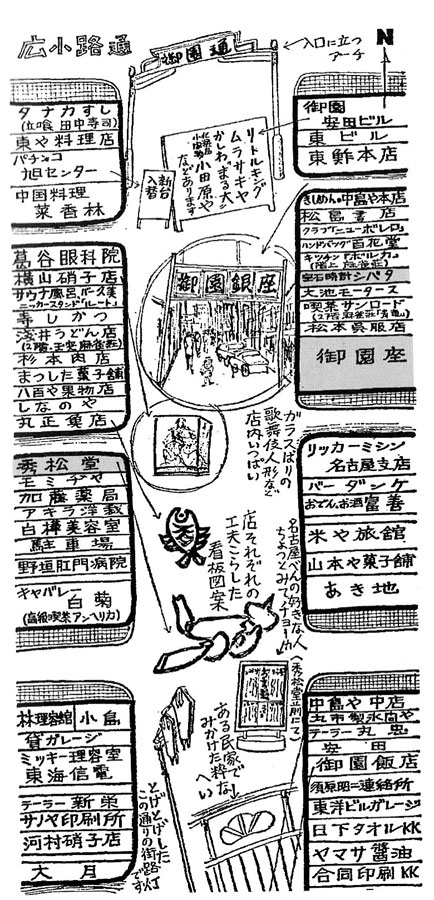 広小路通
御園通
入口に立つ
アーチ
N
タナカずし
(立喰 田中寿司)
東や料理店
パチンコ
旭センター
中国料理
菜香林
新台
入替
リトルキング
ムラサキヤ
かしわ。まる大
小田原や
などあります
御園
安田ビル
東ビル
東鮓本店
葛谷眼科院
横山硝子店
サウナ風呂 バース美
ニッカースタンド「ルート」
寿しかつ
浅井うどん店
(2階・玉突 麻雀荘)
杉本肉店
まつした菓子舗
八百や果物店
しなのや
丸正魚店
御園銀座
きしめんの中島や本店
松島書店
クラブ「ニューボレロ」
ハンドバッグ 百花堂
キッチン「ボルカ」
宝石時計シバタ
大池モータース
喫茶サンロード
松本呉服店
御園座
ガラスばりの
歌舞伎人形など
店内いっぱい
秀松堂
モミヂヤ
加藤薬局
アキラ洋裁
白樺美容室
駐車場
野垣肛門病院
キャバレー
白菊
(高級喫茶アンヘリカ)
店それぞれの
工夫こらした
看板図案
名古屋べんの好きな人
ちょっとみてチョーカ
(秀松堂前にて)
リッカーミシン
名古屋支店
バーダンケ
おでん、お酒 富善
米や旅館
山本や菓子舗
あき地
林理容館
小島
貸ガレージ
ミッキー理容室
東海信電
テーラー新栄
サノヤ印刷所
河村硝子店
大月
とげとげした
この通りの街路灯
です
ある民家で
みかけた粋な
へい
中島や中店
丸市製氷向や
テーラー丸忠
安田
御園飯店
須原昭二連絡所
東洋ビルガレージ
日下タオルKK
ヤマサ醤油
合同印刷KK